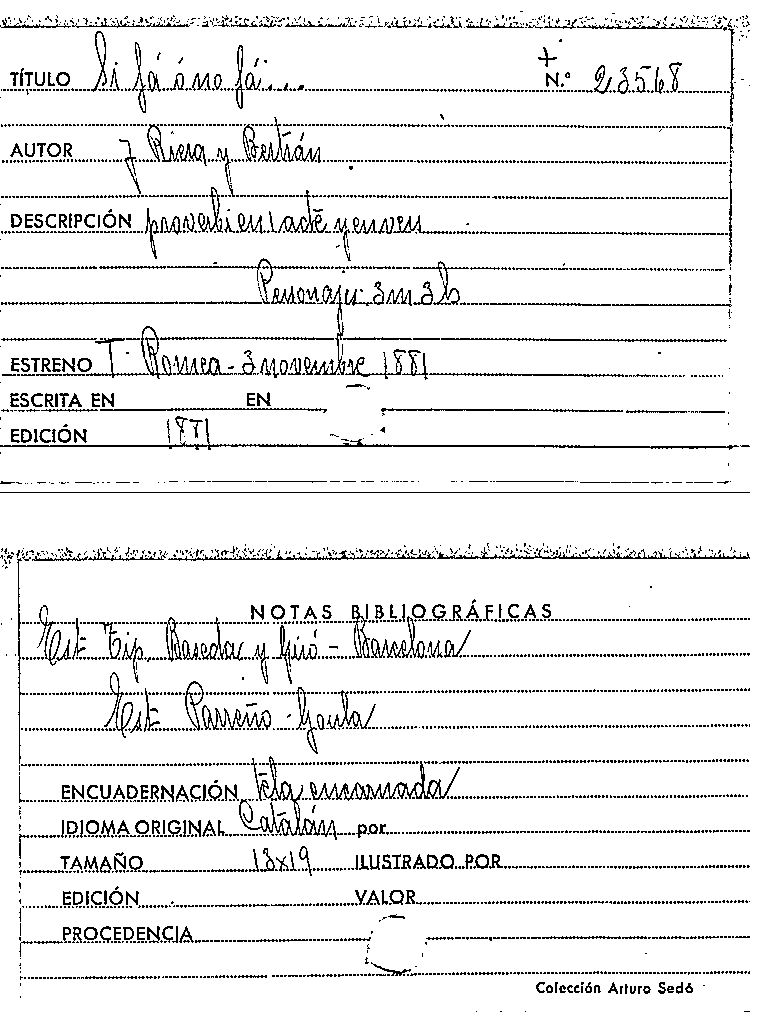 TÍTULO Si fá ó no fá... N.º 23568
AUTOR J Riera y Bertrán
DESCRIPCIÓN proverbi en 1 acte y en vers
Personajes 3m 3h
ESTRENO T. Romea - 3 novembre 1881
ESCRITA EN EN
EDICIÓN 1881
NOTAS BIBLIOGRÁFICAS
Est Tip. Baseda y Giró - Barcelona
Est Parreño - Goula
ENCUADERNACIÓN tela encarnada
IDIOMA ORIGINAL Catalán por
TAMAÑO 13x19 ILUSTRADO POR
EDICIÓN VALOR
PROCEDENCIA
Colección Arturo Sedó